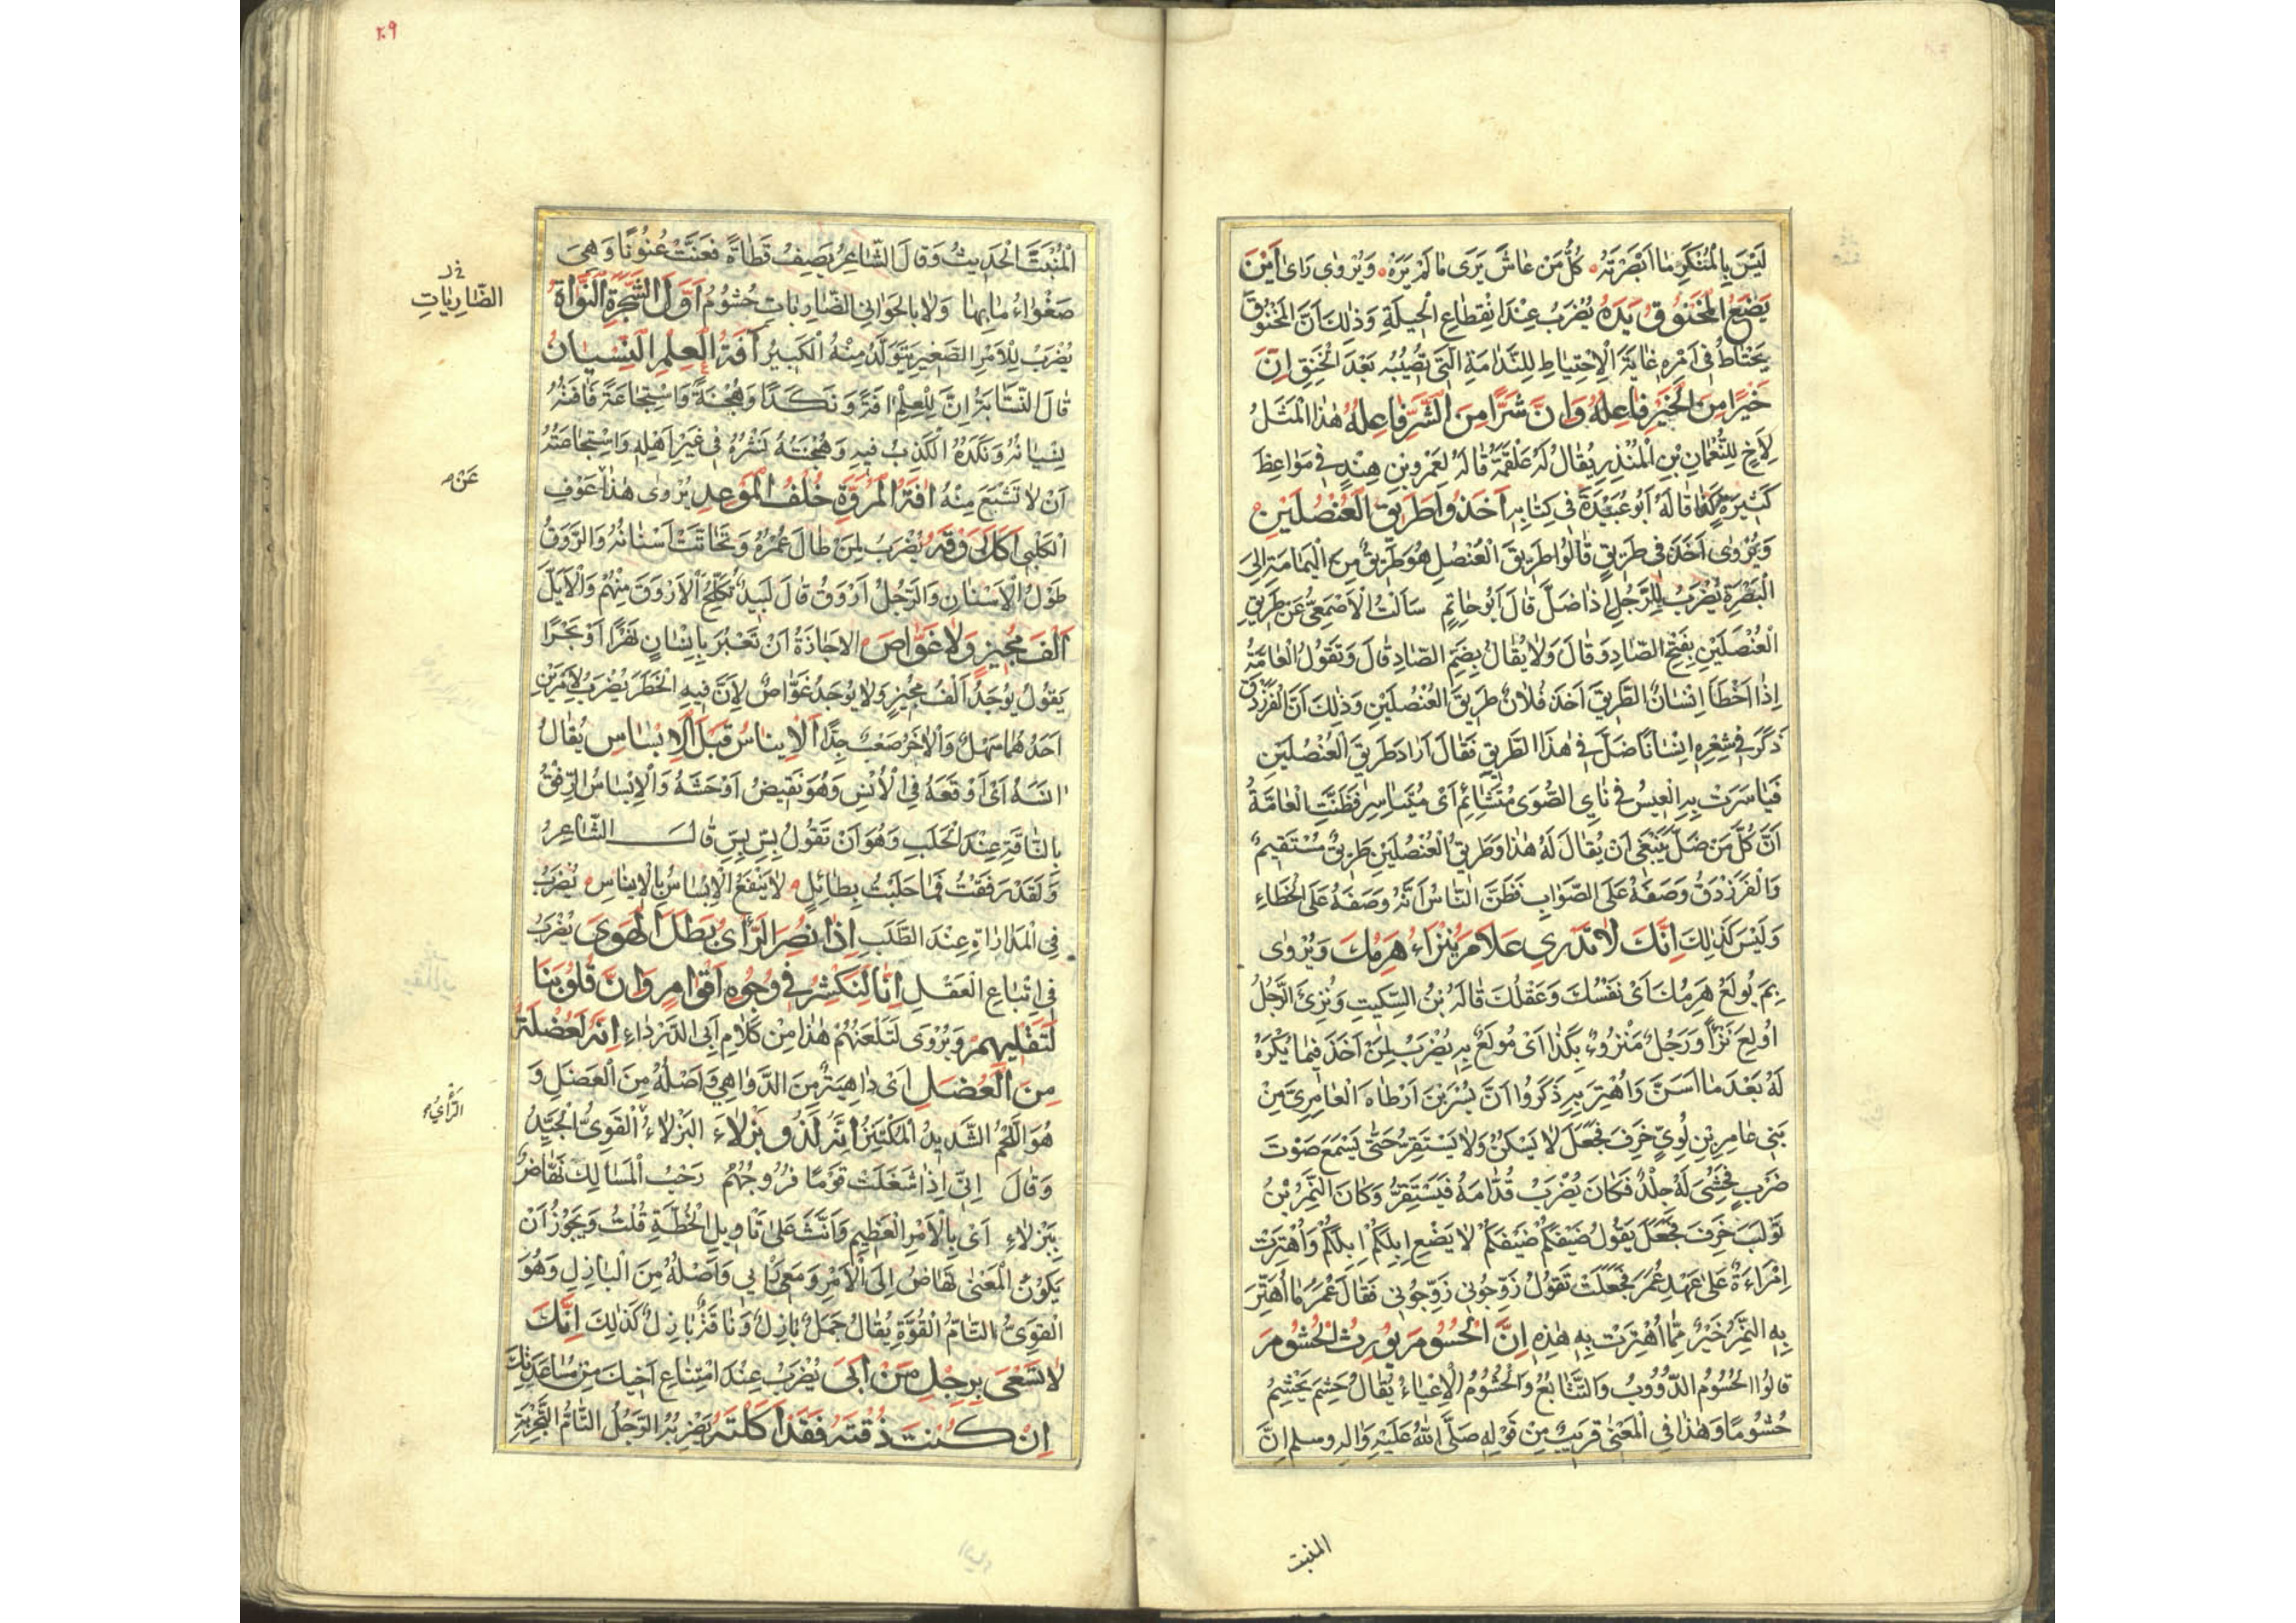 لَيْسَ بِالْمُنْكَرِ مَا اَبْصَرْتَهُ كُلُّ مَنْ عَاشَ يَرَى مَا لَمْ يَرَهُ وَيُرْوٰى رَاىَ اَيْنَ
يَضَعُ الْمَخْنُوقُ يَدَهُ يُضْرَبُ عِنْدَ انْقِطَاعِ الْحِيلَةِ وَذٰلِكَ اَنَّ الْمَخْنُوقَ
يَحْتَاطُ فِى اَمْرِهِ غَايَةَ الْاِحْتِيَاطِ لِلنَّدَامَةِ الَّتِى تُصِيبُهُ بَعْدَ الْخَنِقِ اِنَّ
خَيْرًا مِنَ الْخَيْرِ فَاعِلُهُ وَاِنَّ شَرًّا مِنَ الشَّرِّ فَاعِلُهُ هٰذَا الْمَثَلُ
لِاَخٍ لِلنُّعْمَانِ بْنِ الْمُنْذِرِ يُقَالُ لَهُ عَلْقَمَةُ قَالَهُ لِعَمْرِو بْنِ هِنْدٍ فِى مَوَاعِظَ
كَثِيرَةٍ كَذَا قَالَهُ اَبُو عُبَيْدَةَ فِى كِتَابِهِ اَخَذُوا طَرِيقَ الْعُنْصُلَيْنِ
وَيُرْوٰى اَخَذَ فِى طَرِيقٍ قَالُوا طَرِيقَ الْعُنْصُلِ هُوَ طَرِيقٌ مِنَ الْيَمَامَةِ اِلَى
الْبَصْرَةِ يُضْرَبُ لِلرَّجُلِ اِذَا ضَلَّ قَالَ اَبُو حَاتِمٍ سَاَلْتُ الْاَصْمَعِىَّ عَنْ طَرِيقِ
الْعُنْصَلَيْنِ بِفَتْحِ الصَّادِ وَقَالَ وَلَا يُقَالُ بِضَمِّ الصَّادِ قَالَ وَتَقُولُ الْعَامَّةُ
اِذَا اَخْطَاَ اِنْسَانٌ الطَّرِيقَ اَخَذَ فُلَانٌ طَرِيقَ الْعُنْصُلَيْنِ وَذٰلِكَ اَنَّ الْفَرَزْدَقَ
ذَكَرَ فِى شِعْرِهِ اِنْسَانًا ضَلَّ فِى هٰذَا الطَّرِيقِ فَقَالَ اَرَادَ طَرِيقَ الْعُنْصُلَيْنِ
فَيَاسَرَتْ بِهِ الْعِيسُ فِى نَاىِ الصُّوَى مُتَشَائِمٍ اَىْ مُتَيَاسِرٍ فَظَنَّتِ الْعَامَّةُ
اَنَّ كُلَّ مَنْ ضَلَّ يَنْبَغِى اَنْ يُقَالَ لَهُ هٰذَا وَطَرِيقُ الْعُنْصُلَيْنِ طَرِيقٌ مُسْتَقِيمٌ
وَالْفَرَزْدَقُ وَصَفَهُ عَلَى الصَّوَابِ فَظَنَّ النَّاسُ اَنَّهُ وَصَفَهُ عَلَى الْخَطَاءِ
وَلَيْسَ كَذٰلِكَ اِنَّكَ لَا تَدْرِى عَلَامَ يُنْزَاءُ هَرِمُكَ وَيُرْوٰى
بِمَ يُولَعُ هَرِمُكَ اَىْ نَفْسُكَ وَعَقْلُكَ قَالَهُ بْنُ السِّكِّيتِ وَنُزِئَ الرَّجُلُ
اُولِعَ نَزْأً وَرَجُلٌ مَنْزُوءٌ بِكَذَا اَىْ مُولَعٌ بِهِ يُضْرَبُ لِمَنْ اَخَذَ فِيمَا يُكْرَهُ
لَهُ بَعْدَ مَا اَسَنَّ وَاُهْتِرَ بِهِ ذَكَرُوا اَنَّ بُسْرَ بْنَ اَرْطَاهَ الْعَامِرِىَّ مِنْ
بَنِى عَامِرِ بْنِ لُوَىٍّ خَرِفَ فَجَعَلَ لَا يَسْكُنُ وَلَا يَسْتَقِرُّ حَتّٰى يَسْمَعَ صَوْتَ
ضَرْبٍ فَحُشِىَ لَهُ جِلْدٌ فَكَانَ يُضْرَبُ قُدَّامَهُ فَيَسْتَقِرُّ وَكَانَ النَّمِرُ بْنُ
تَوْلَبَ خَرِفَ فَجَعَلَ يَقُولُ ضَيْفَكُمْ ضَيْفَكُمْ لَا يَضْعِ اِبِلَكُمْ اِبِلَكُمْ وَاُهْتِرَتْ
اِمْرَاَةٌ عَلٰى عَهْدِ عُمَرَ فَجَعَلَتْ تَقُولُ زَوِّجُونِى زَوِّجُونِى فَقَالَ عُمَرُ مَا اُهْتِرَ
بِهِ النَّمِرُ خَيْرٌ مِمَّا اُهْتِرَتْ بِهِ هٰذِهِ اِنَّ الْحُسُومَ يُورِثُ الْحُشُومَ
قَالُوا الْحُسُومُ الدُّؤُوبُ وَالتَّتَابُعُ وَالْحُشُومُ الْاِعْيَاءُ يُقَالُ حَشِمَ يَحْشِمُ
حُشُومًا وَهٰذَا فِى الْمَعْنٰى قَرِيبٌ مِنْ قَوْلِهِ صَلَّى اللهُ عَلَيْهِ وَالِهِ وسلم اِنَّ
المنبت
٢٠٩
الْمُنْبَتَّ الْحَدِيثُ وَقَالَ الشَّاعِرُ يَصِفُ قَطَاةً فَعَنَّتْ عُنُونًا وَهِىَ
صَغْوَاءُ مَا بِهَا وَلَا بِالْخَوَافِى الضَّارِبَاتِ حُشُومُ اَوَّلُ الشَّجَرَةِ النَّوَاةُ
الضَّارِيَاتِ
يُضْرَبُ لِلْاَمْرِ الصَّغِيرِ يَتَوَلَّدُ مِنْهُ الْكَبِيرُ اٰفَةُ الْعِلْمِ النِّسْيَانُ
قَالَ النَّسَّابَةُ اِنَّ لِلْعِلْمِ اٰفَةً وَنَكَدًا وَهُجْنَةً وَاسْتِجَاعَةً فَاٰفَتُهُ
نِسْيَانُهُ وَنَكَدُهُ الْكَذِبُ فِيهِ وَهُجْنَتُهُ نَشْرُهُ فِى غَيْرِ اَهْلِهِ وَاسْتِجَاعَتُهُ
اَنْ لَا تَشْبَعَ مِنْهُ اٰفَةُ الْمُرُوَّةِ خُلْفُ الْمَوْعِدِ يُرْوٰى هٰذَا عَوْفِ
عَنْ
الْكَلْبِىِّ اَكَلَ رَوْقَهُ يُضْرَبُ لِمَنْ طَالَ عُمْرُهُ وَتَحَاتَّتْ اَسْنَانُهُ وَالرَّوَقُ
طُولُ الْاَسْنَانِ وَالرَّجُلُ اَرْوَقُ قَالَ لَبِيدٌ تُكْلِحُ الْاَرْوَقَ مِنْهُمْ وَالْاَيَلَّ
اَلْفُ مُجِيزٍ وَلَا غَوَّاصَ الاِجَازَةُ اَنْ تَعْبُرَ بِاِنْسَانٍ نَهْرًا اَوْ بَحْرًا
يَقُولُ يُوجَدُ اَلْفُ مُجِيزٍ وَلَا يُوجَدُ غَوَّاصٌ لِاَنَّ فِيهِ الْخَطَرَ يُضْرَبُ لِاَمْرَيْنِ
اَحَدُهُمَا سَهْلٌ وَالْاٰخَرُ صَعْبٌ جِدًّا اَلْاِينَاسُ قَبْلَ الْاِبْسَاسِ يُقَالُ
اٰنَسَهُ اَىْ اَوْقَعَهُ فِى الْاُنْسِ وَهُوَ نَقِيضُ اَوْحَشَهُ وَالْاِبْسَاسُ الرِّفْقُ
بِالنَّاقَةِ عِنْدَ الْحَلَبِ وَهُوَ اَنْ تَقُولَ بِسِّ بِسِّ قَالَ الشَّاعِرُ
وَلَقَدْ رَفَقْتُ فَمَا حَلَبْتُ بِطَائِلٍ لَا يَنْفَعُ الْاِبْسَاسُ بِالْاِينَاسِ يُضْرَبُ
فِى الْمُدَارَاةِ عِنْدَ الطَّلَبِ اِذَا نُصِرَ الرَّأْىُ بَطَلَ الْهَوٰى يُضْرَبُ
فِى اتِّبَاعِ الْعَقْلِ اِنَّا لَنَكْشِرُ فِى وُجُوهِ اَقْوَامٍ وَاِنَّ قُلُوبَنَا
لَتَقْلِيهِمْ وَيُرْوَى لَتَلْعَنُهُمْ هٰذَا مِنْ كَلَامِ اَبِى الدَّرْدَاءِ اِنَّهُ لَعُضْلَةٌ
مِنَ الْعُضَلِ اَىْ دَاهِيَةٌ مِنَ الدَّوَاهِى وَاَصْلُهُ مِنَ الْعَضَلِ وَ
هُوَ اللَّحْمُ الشَّدِيدُ الْمُكْتَنِزُ اِنَّهُ لَذُو بَزْلَاءَ الْبَزْلَاءُ الْقَوِىُّ الْجَيِّدُ
الرَّأْىُ
وَقَالَ اِنِّى اِذَا شَغَلَتْ قَوْمًا فُرُوجُهُمُ رَحْبُ الْمَسَالِكِ نَهَّاضٌ
بِبَزْلَاءِ اَىْ بِالْاَمْرِ الْعَظِيمِ وَاَنَّثَ عَلٰى تَاْوِيلِ الْخُطَّةِ قُلْتُ وَيَجُوزُ اَنْ
يَكُونَ الْمَعْنٰى نَهَّاضٌ اِلَى الْاَمْرِ وَمَعِى رَأْيِى وَاَصْلُهُ مِنَ الْبَازِلِ وَهُوَ
الْقَوِىُّ التَّامُّ الْقُوَّةِ يُقَالُ جَمَلٌ بَازِلٌ وَنَاقَةٌ بَازِلٌ كَذٰلِكَ اِنَّكَ
لَا تَسْعَى بِرِجْلِ مَنْ اَبَى يُضْرَبُ عِنْدَ امْتِنَاعِ اَخِيكَ مِنْ مُسَاعَدَتِكَ
اِنْ كُنْتَ ذُقْتَهُ فَقَدْ اَكَلْتُهُ يَضْرِبُهُ الرَّجُلُ التَّامُّ التَّجْرِبَةِ